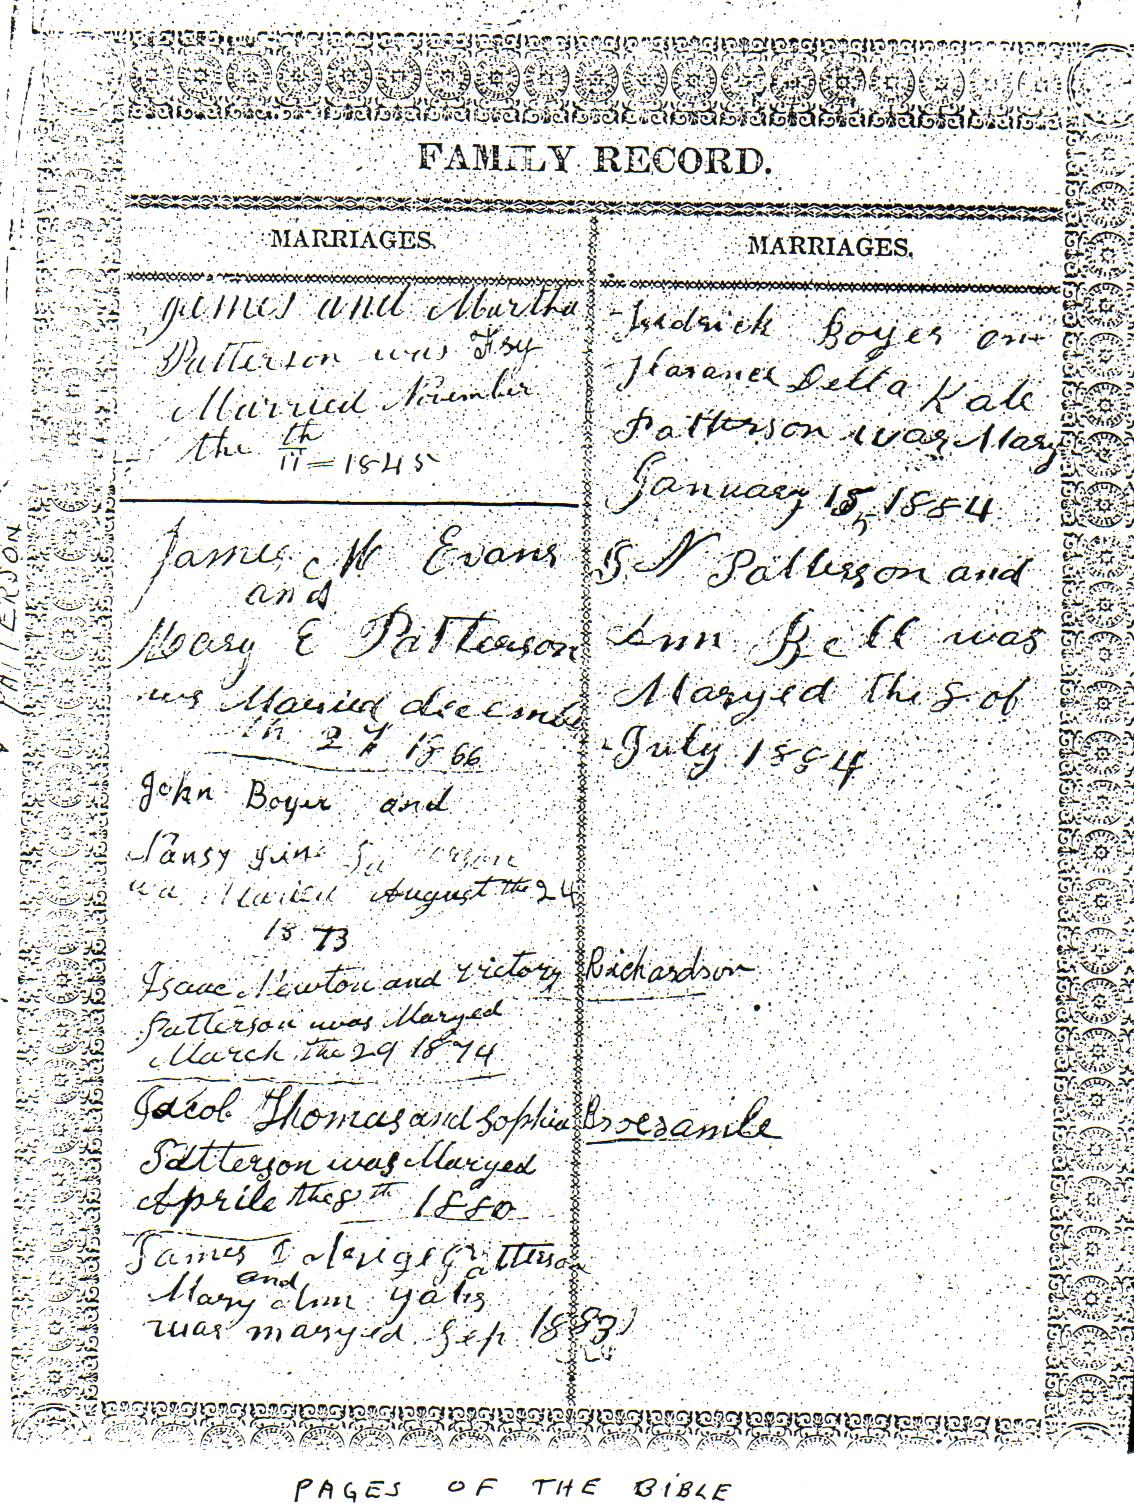 FAMILY RECORD.
MARRIAGES.
James and Martha
Patterson was Fry
Married November
the 11th = 1845
James W Evans
and
Mary E Patterson
was Married decembe
th 27 1866
John Boyer and
Nansy Jine Patterson
wa Maried August the 24
1873
Isaac Newton and victory Richardson
Patterson was Maryed
March the 29 1874
Jacob Thomas and Sophia Broesamle
Patterson was Maryed
Aprile the 8th 1880
James Patterson
and
Mary Ann Yates
was maryed Sep 1883
MARRIAGES.
Fredrick Boyer
Florance Della Kate
Patterson was Mary
January 15, 1884
N Patterson and
Ann Bell was
Maryed the 8 of
July 1884
PATTERSON
PAGES OF THE BIBLE